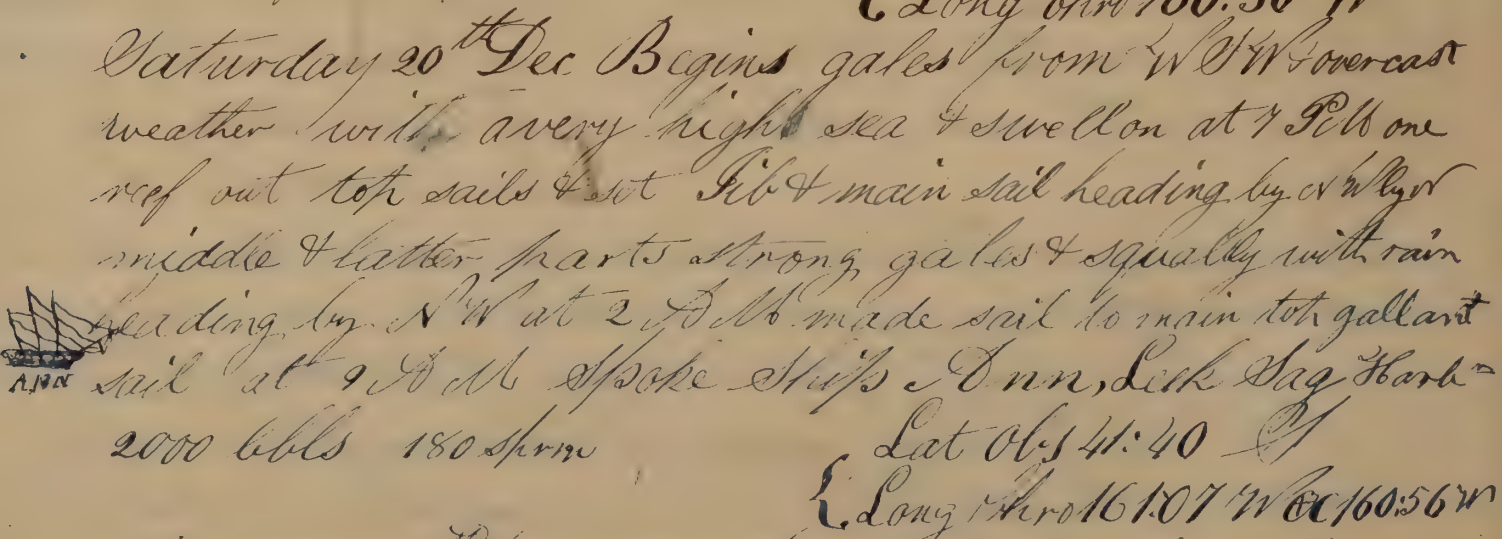 { Long Chro 160.50 W
Saturday 20th Dec Begins gales from WSW & overcast
weather with a very high sea & swell on at 7 PM one
reef out top sails & set Jib & main sail heading by
middle & latter parts strong gales & squally with rain
heading by NW at 2 AM made sail to main top gallant
ANN sail at 9 AM Spoke Ship Ann, Leek Sag Harb=
2000 bbls 180 sprm Lat Obs 41:40 S
{ Long Chro 161.07 W 160:56 W